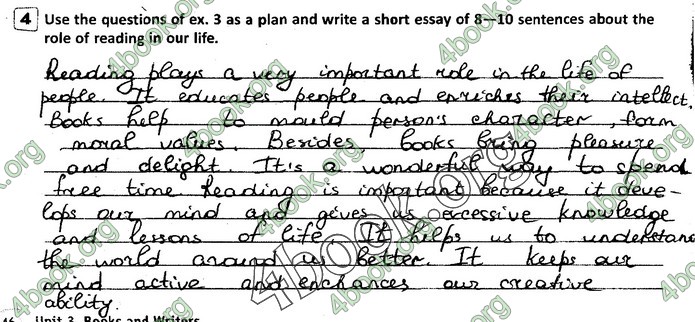 4 Use the questions of ex. 3 as a plan and write a short essay of 8—10 sentences about the
role of reading in our life.
Reading plays a very important role in the life of
people. It educates people and enriches their intellect.
Books help to mould person's character, form
moral values. Besides, books bring pleasure
and delight. It's a wonderful way to spend
free time. Reading is important because it deve-
lops our mind and gives us excessive knowledge
and lessons of life. It helps us to understand
the world around us better. It keeps our
mind active and enchances our creative
ability.
46 Unit 3. Books and Writers
4book.org
4book.org
4book.org
4book.org
4book.org
4book.org